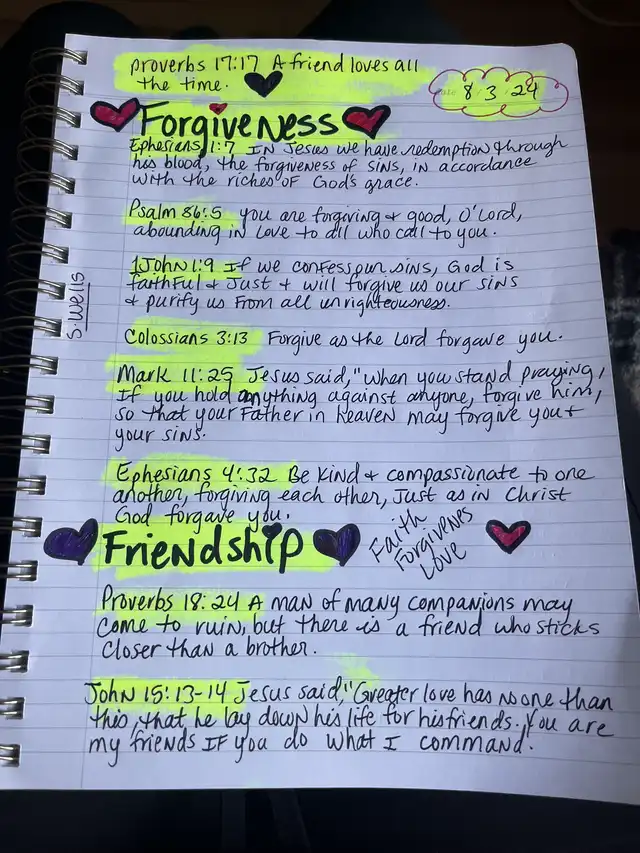 Proverbs 17:17 A friend loves all
the time.
8.3.24
Forgiveness
Ephesians 1:7 IN Jesus we have redemption through
his blood, the forgiveness of sins, in accordance
with the riches of God's grace.
Psalm 86:5 you are forgiving & good, O'Lord,
abounding in Love to all who call to you.
1 John 1:9 If we confess our sins, God is
faithful & Just & will forgive us our sins
& purify us from all unrighteousness.
S. Wells
Colossians 3:13 Forgive as the Lord forgave you.
Mark 11:25 Jesus said, "when you stand praying,
If you hold anything against anyone, forgive him,
so that your Father in heaven may forgive you &
your sins.
Ephesians 4:32 Be kind & compassionate to one
another, forgiving each other, Just as in Christ
God forgave you.
Friendship
Faith
Forgivenes
Love
Proverbs 18:24 A man of many companions may
come to ruin, but there is a friend who sticks
closer than a brother.
John 15:13-14 Jesus said, "Greater love has no one than
this, that he lay down his life for his friends. You are
my friends IF you do what I command.